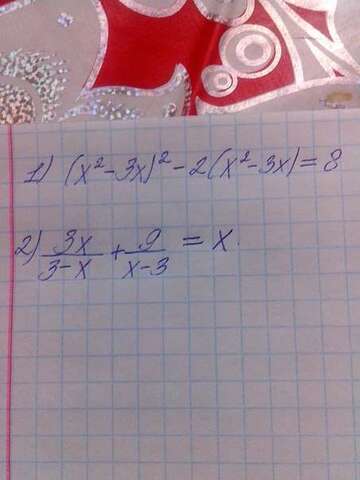 1) (x²-3x)²-2(x²-3x)=8
2) 3x/3-x + 9/x-3 = x.